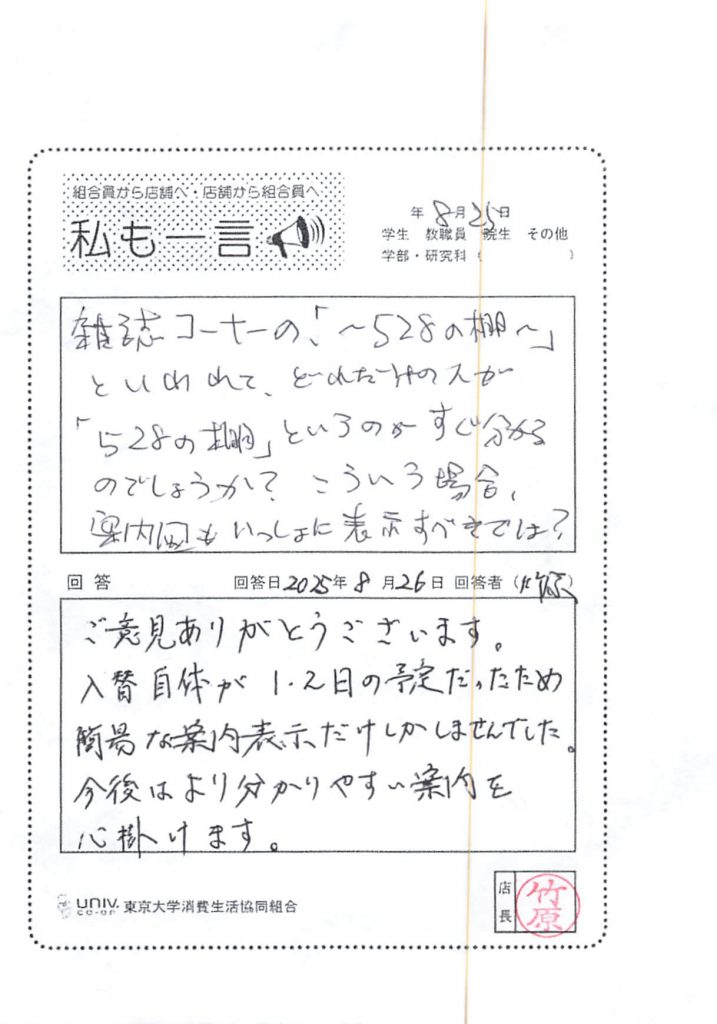 組合員から店舗へ・店舗から組合員へ
私も一言
年 8月25日
学生 教職員 院生 その他
学部・研究科( )
雑誌コーナーの、「～528の棚～」
といわれて、どれだけの人が
「528の棚」というのがすぐ分かる
のでしょうか? こういう場合、
案内図もいっしょに表示すべきでは?
回答 回答日2025年8月26日 回答者(竹原)
ご意見ありがとうございます。
入替自体が1.2日の予定だったため
簡易な案内表示だけしかしませんでした。
今後はより分かりやすい案内を
心掛けます。
UNIV. CO-OP 東京大学消費生活協同組合
店長 竹原